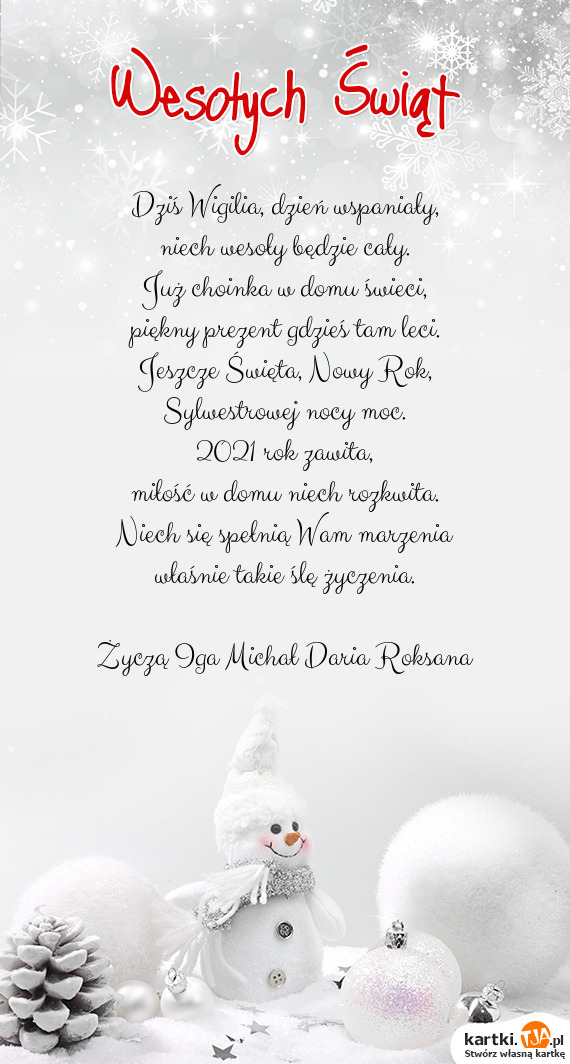 Wesołych Świąt
Dziś Wigilia, dzień wspaniały,
niech wesoły będzie cały.
Już choinka w domu świeci,
piękny prezent gdzieś tam leci.
Jeszcze Święta, Nowy Rok,
Sylwestrowej nocy moc.
2021 rok zawita,
miłość w domu niech rozkwita.
Niech się spełnią Wam marzenia
właśnie takie ślę życzenia.
Życzą Iga Michał Daria Roksana
kartki.TJA.pl
Stwórz własną kartkę